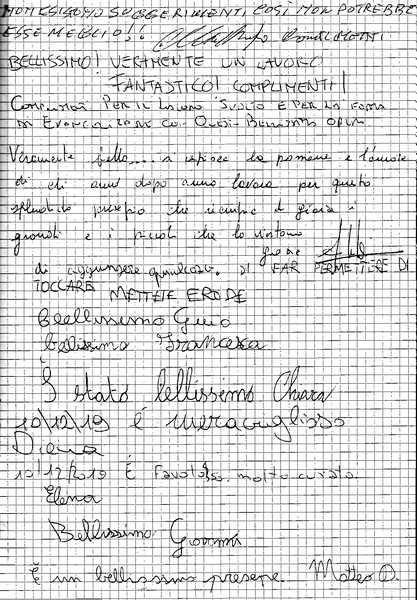 NON ESISTONO SUGGERIMENTI, COSÌ NON POTREBBE
ESSE MEGLIO!!
BELLISSIMO! VERAMENTE UN LAVORO
FANTASTICO! COMPLIMENTI!
COMPLIMENTI PER IL LAVORO SVOLTO E PER LA FORMA
DI EVANGELIZZARE CON QUESTA BELLISSIMA OPERA
Veramente bello.... si capisce la passione e l'amore
di chi anno dopo anno lavora per questo
splendido presepio che riempie di gioia i
grandi e i piccoli che lo visitano
di aggiungere qualcosa. DI FAR PERMETTERE DI
TOCCARE METTETE ERODE
Beellissimo Guio
bellissimo Francesca
É stato bellissimo Chiara
10/12/19 é meraviglioso
Diena
10/12/2019 È Favoloso. molto curato.
Elena
Bellissimo Giovanni
È un bellissimo presepe. Matteo D.